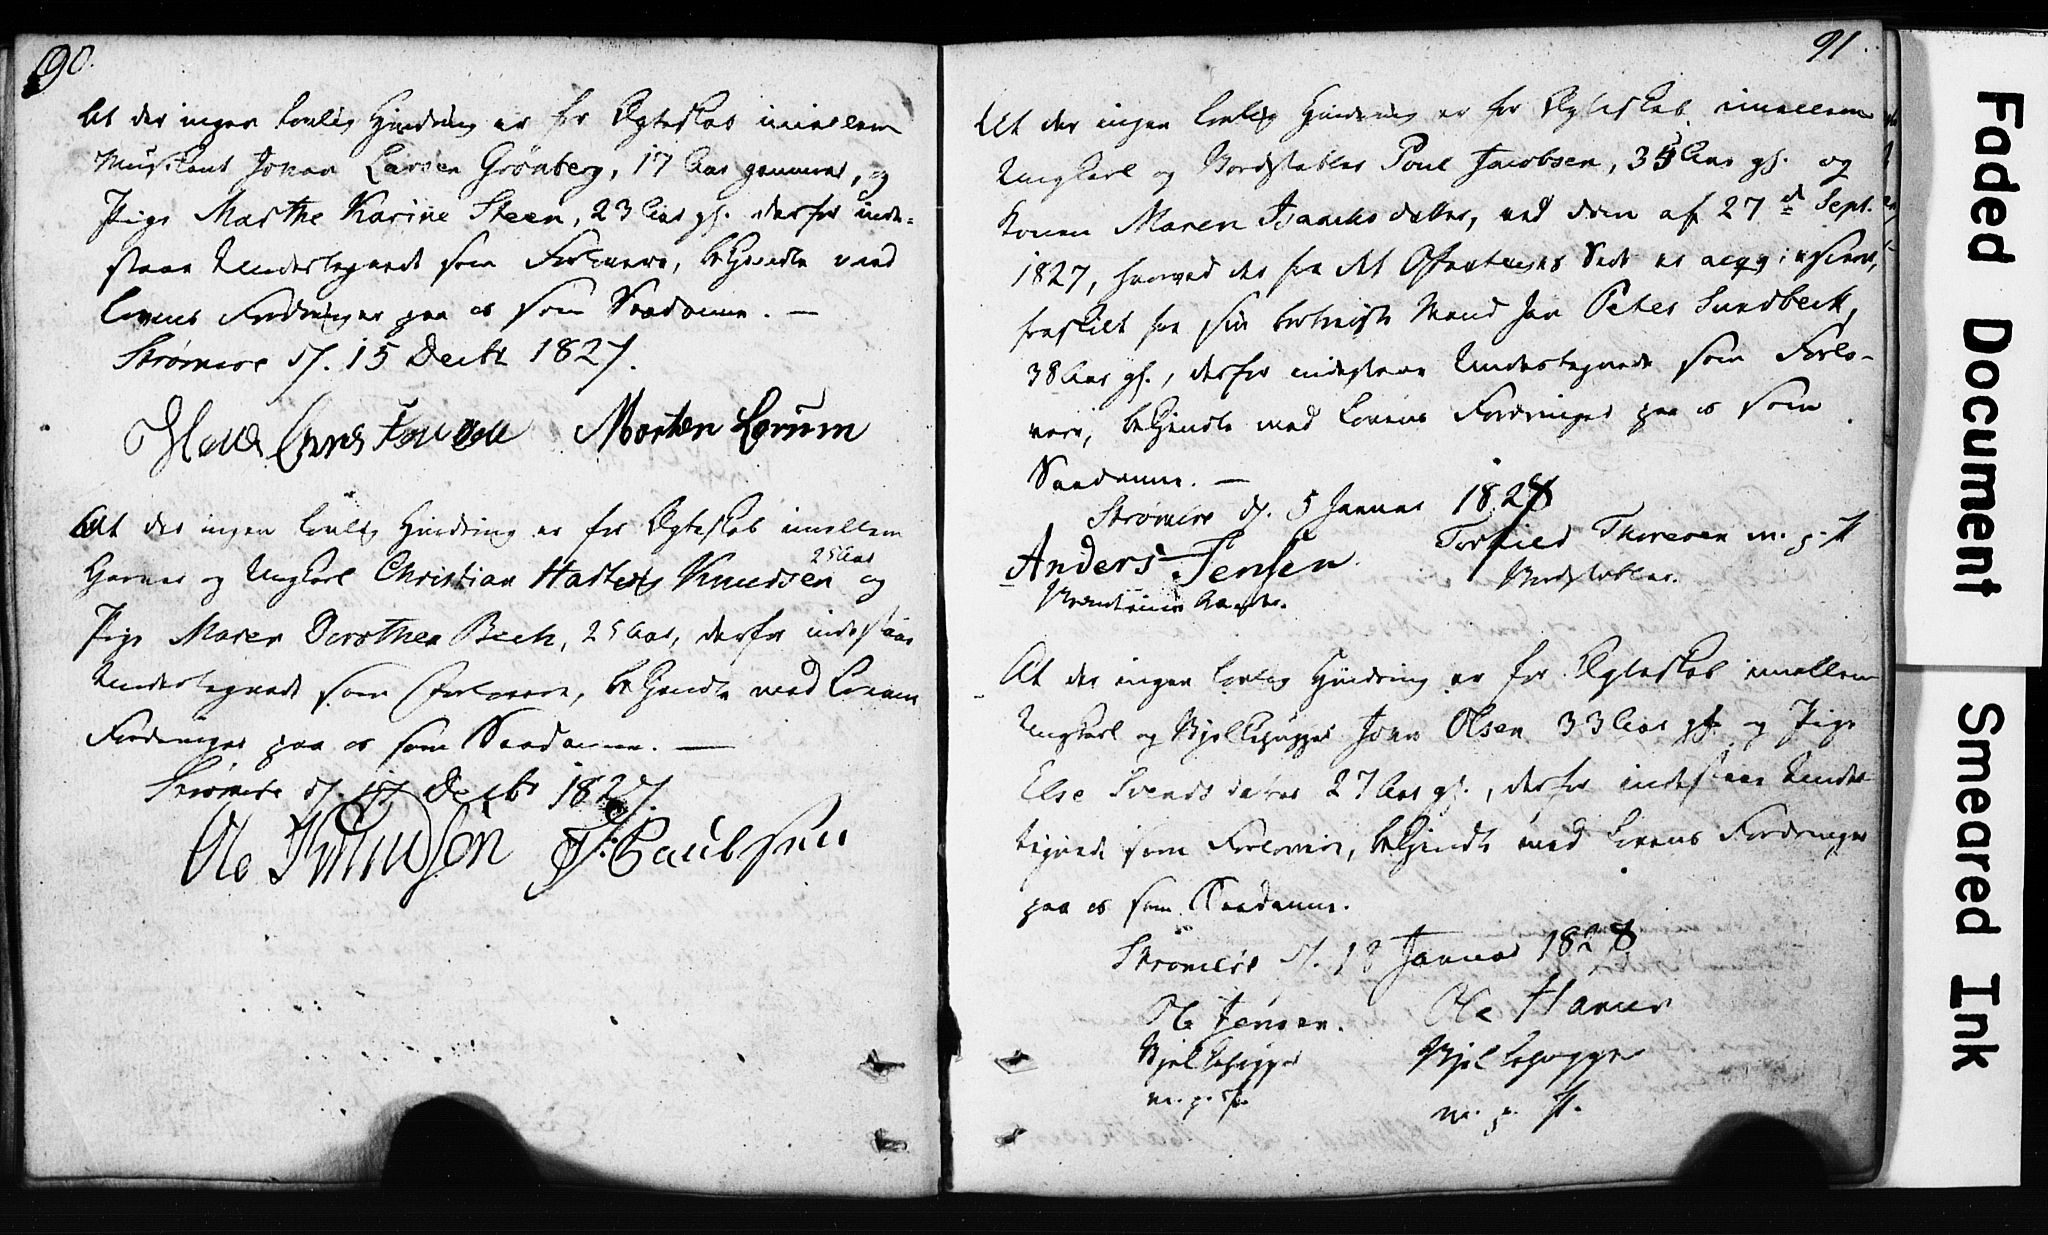 90.
At der ingen lovlig Hindring er for Ægteskab imellem
Musikant Johan Larsen Grønberg, 17 Aar gammel, og
Pige Marthe Karine Steen, 23 Aar gl. derfor inde-
staae Undertegnede som Forlovere, bekjendte med
Lovens Fordringer paa os som Saadanne. —
Strømsøe d. 15 Decbr 1827.
Morten Lorum
At der ingen lovlig Hindring er for Ægteskab imellem
25 Aar
Garver og Ungkarl Christian Hartvig Knudsen og
Pige Maren Dorothea Bech, 25 Aar, derfor indestaae
Undertegnede som Forlovere, bekjendte med Lovens
Fordringer paa os som Saadanne. —
Strømsøe d. 17 Decbr 1827.
Ole Knudsen P. Paulsen
91.
At der ingen lovlig Hindring er for Ægteskab imellem
Ungkarl og Bordstabler Poul Jacobsen, 35 Aar gl. og
Konen Maren Isaachsdatter, ved Dom af 27de Sept.
1827, hvorved der fra det Offentliges Side er acqviesceret,
fraskilt fra sin bortreiste Mand Jan Peter Sundbeck,
38 Aar gl., derfor indestaae Undertegnede som Forlo-
vere, bekjendte med Lovens Fordringer paa os som
Saadanne. —
Strømsøe d. 5 Januar 1828
Anders Jensen Torkild Thoresen m. p. P.
Bordstabler.
At der ingen lovlig Hindring er for Ægteskab imellem
Ungkarl og Bjelkehugger John Olsen 33 Aar gl. og Pige
Else Svendsdatter 27 Aar gl., derfor indestaae Under
tegnede som Forlovere, bekjendte med Lovens Fordringer
paa os som Saadanne.
Strømsøe d. 18 Januar 1828
Ole Jensen. Ole Hansen
Bjelkehugger Bjelkehugger
m. p. P. m. p. P.
Faded Document
Smeared Ink